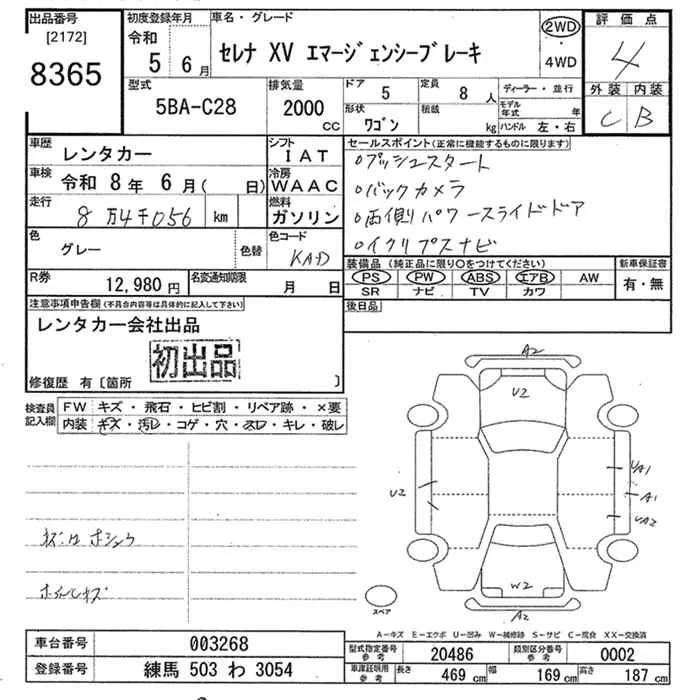 出品番号
[2172]
8365
初度登録年月
令和
5 6月
車名・グレード
セレナ XV エマージェンシーブレーキ
2WD
・
4WD
評価点
4
外装 内装
C B
型式
5BA-C28
排気量
2000
CC
ドア 5
定員 8 人
形状 ワゴン
積載 kg
ディーラー・並行
モデル年式 年
ハンドル 左・右
車歴
レンタカー
シフト
IAT
車検 令和 8年 6月( 日)
冷房
WAAC
走行 8万4千056 km
燃料
ガソリン
色 グレー
色替
色コード
KAD
R券 12,980円
名変通知期限 月 日
セールスポイント(正常に機能するものに限ります)
○プッシュスタート
○バックカメラ
○両側パワースライドドア
○イクリプスナビ
装備品(純正品に限り○をつけてください)
PS PW ABS エアB AW
SR ナビ TV カワ
新車保証書
有・無
後日品
注意事項申告欄(不具合内容等は具体的に記入して下さい)
レンタカー会社出品
初出品
修復歴 有〔箇所 〕
検査員記入欄
FW キズ・飛石・ヒビ割・リペア跡・×要
内装 キズ・汚レ・コゲ・穴・スレ・キレ・破レ
A2
U2
U2
UA1
A1
UA2
W2
A2
スペア
A-キズ E-エクボ U-凹み W-補修跡 S-サビ C-腐食 XX-交換済
車台番号 003268
登録番号 練馬 503 わ 3054
型式指定番号 参考 20486
類別区分番号 参考 0002
車庫証明用 参考
長さ 469 cm
幅 169 cm
高さ 187 cm